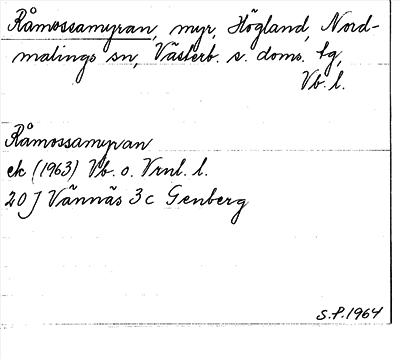 Råmossamyran, myr, Högland, Nord-
malings sn, Västerb. s. doms. tg,
Vb. l.
Råmossamyran
ek (1963) Vb. o. Vrnl. l.
20 J Vännäs 3c Genberg
S.P. 1964